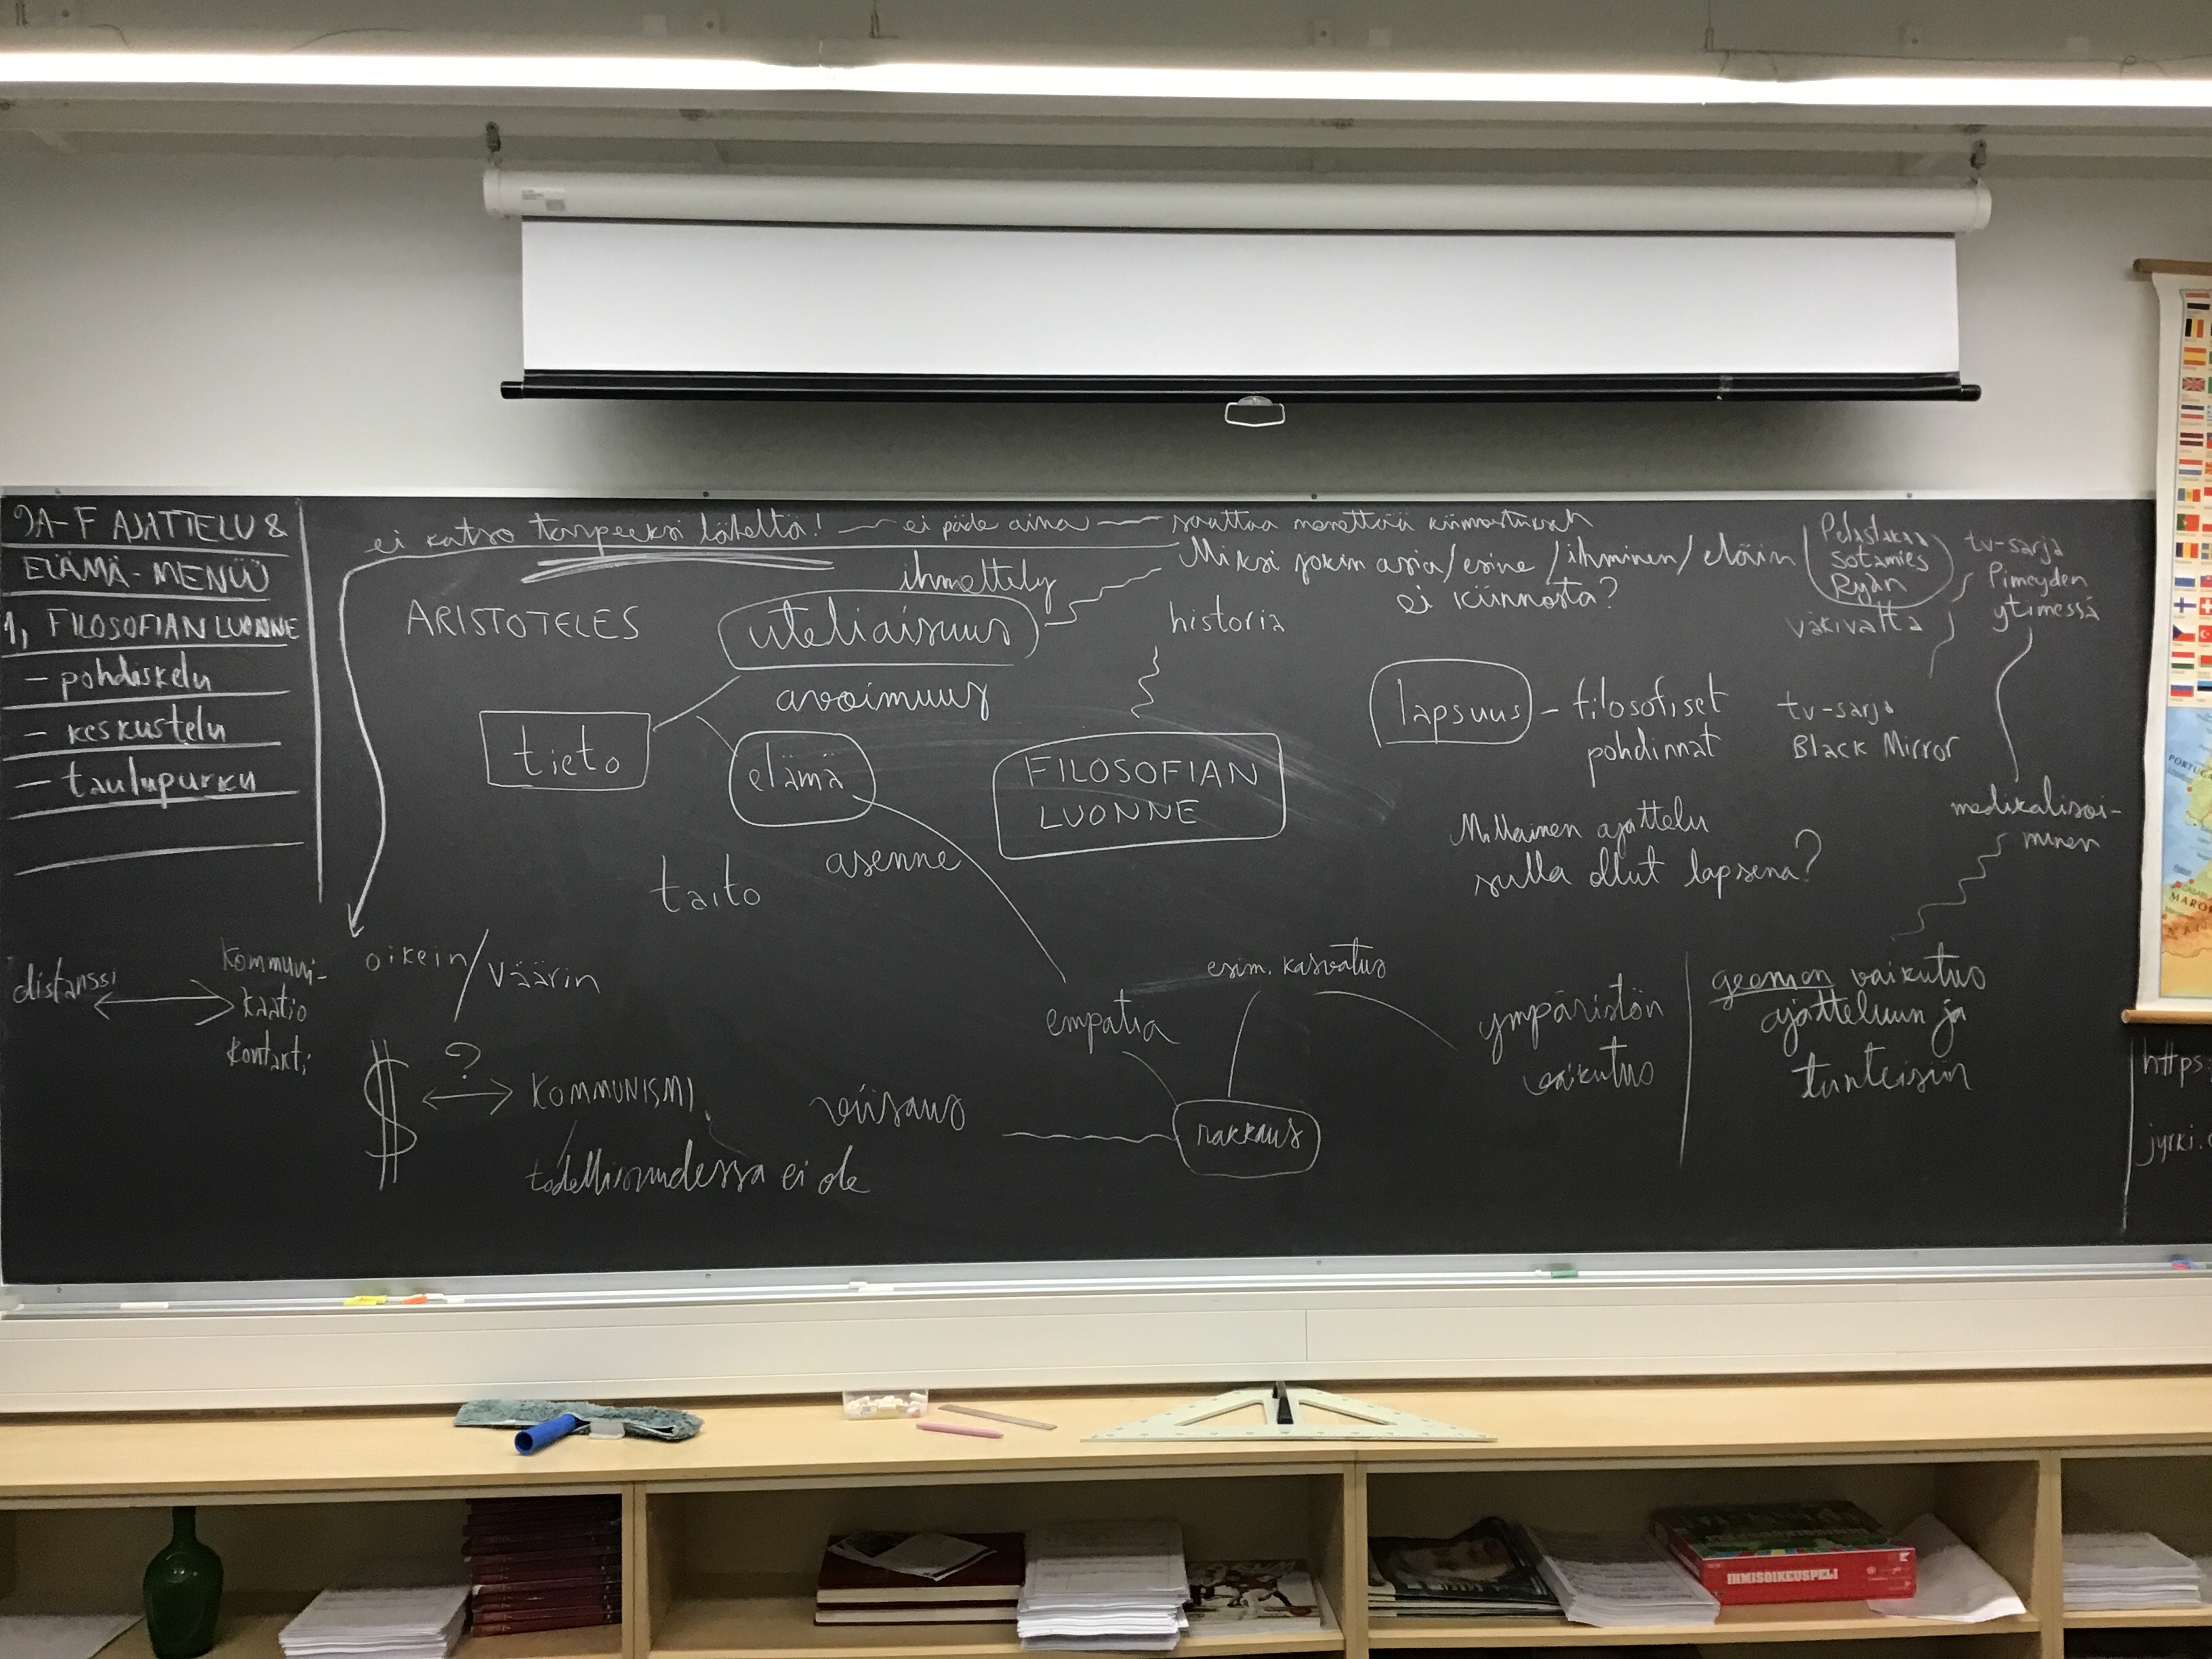 9A-F AJATTELU &
ELÄMÄ-MENÜÜ
1, FILOSOFIAN LUONNE
- pohdiskelu
- keskustelu
- taulupurku
ei katso tarpeeksi läheltä! — ei päde aina — saattaa menettää kiinnostuksen
Miksi jokin asia/esine/ihminen/eläin
ei kiinnosta?
ihmettely
ARISTOTELES
uteliaisuus
historia
avoimuus
tieto
elämä
FILOSOFIAN
LUONNE
asenne
taito
lapsuus - filosofiset
pohdinnat
Millainen ajattelu
sulla ollut lapsena?
Pelastakaa
sotamies
Ryan
väkivalta
tv-sarja
Pimeyden
ytimessä
tv-sarja
Black Mirror
medikalisoi-
minen
distanssi
kommuni-
kaatio
kontakti
oikein/väärin
$ ? KOMMUNISMI
todellisuudessa ei ole
viisaus
empatia
esim. kasvatus
rakkaus
ympäristön
vaikutus
geenien vaikutus
ajatteluun ja
tunteisiin
https:
jyrki.
PORTUGA
MARO
IHMISOIKEUSPELI